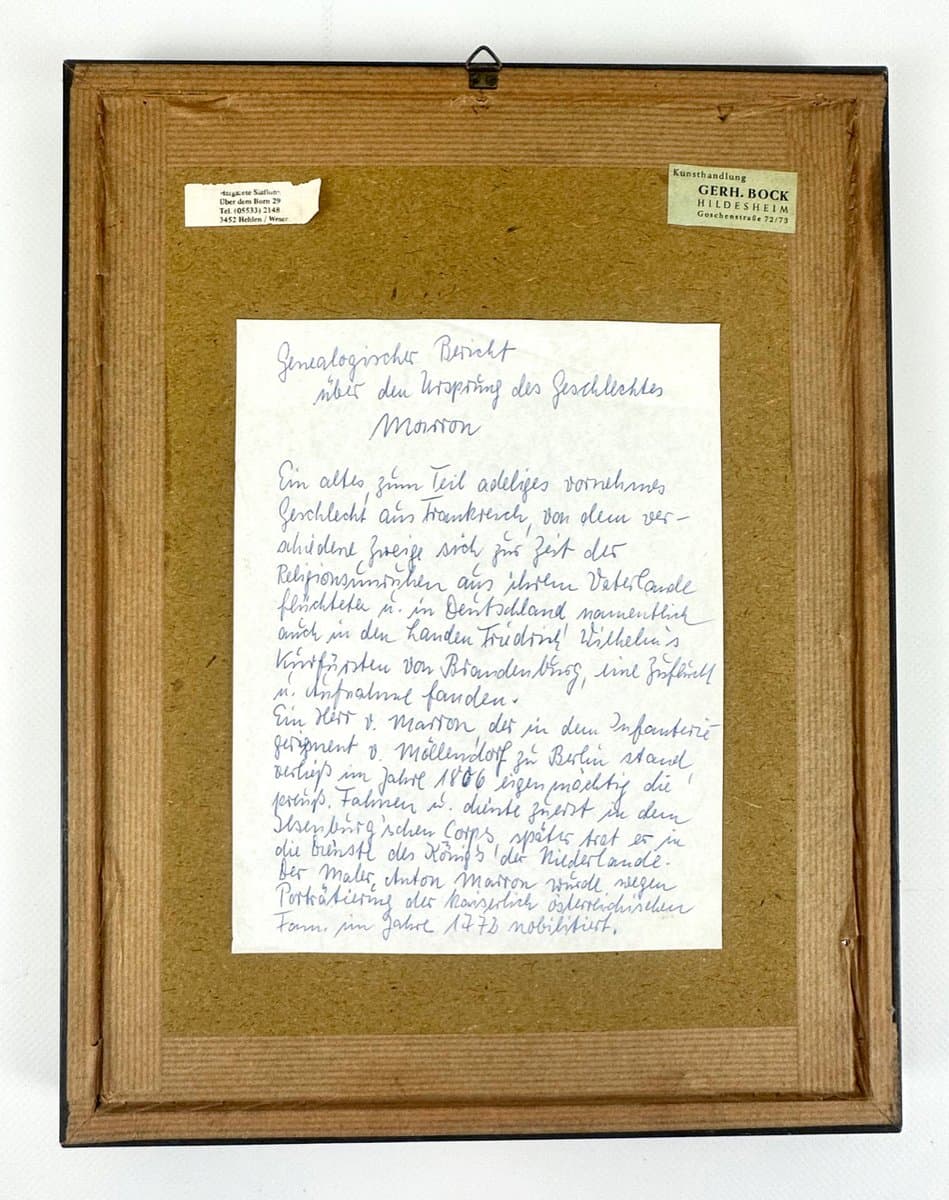 Margarete
Über dem Born 29
Tel. (05533) 2148
3452 Hehlen / Weser
Kunsthandlung
GERH. BOCK
HILDESHEIM
Goschenstraße 72/73
Genealogischer Bericht
über den Ursprung des Geschlechtes
Marron
Ein altes, zum Teil adeliges vornehmes
Geschlecht aus Frankreich, von dem ver-
schiedene Zweige sich zur Zeit der
Religionsunruhen aus ihrem Vaterlande
flüchteten u. in Deutschland namentlich
auch in den Landen Friedrich Wilhelms
Kurfürsten von Brandenburg, eine Zuflucht
u. Aufnahme fanden.
Ein Herr v. Marron, der in dem Infanterie
regiment v. Möllendorf zu Berlin stand,
verließ im Jahre 1806 eigenmächtig die
preuß. Fahnen u. diente zuerst in dem
Isenburg'schen Corps, später trat er in
die Dienste des Königs der Niederlande.
Der Maler Anton Marron wurde wegen
Porträtierung der kaiserlich österreichischen
Fam. im Jahre 1772 nobilitiert.